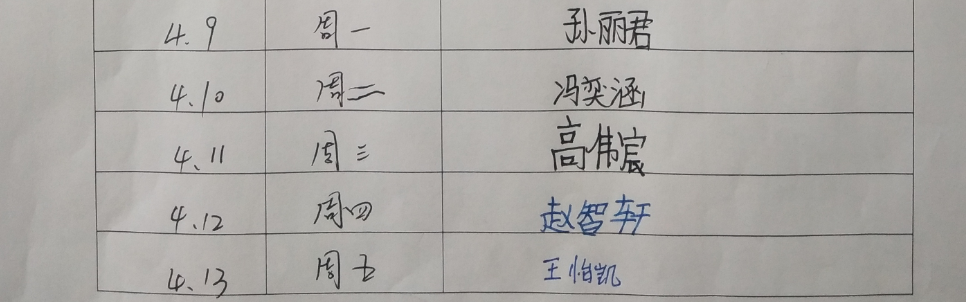 4.9 周一 孙丽君
4.10 周二 冯奕涵
4.11 周三 高伟宸
4.12 周四 赵智轩
4.13 周五 王怡凯